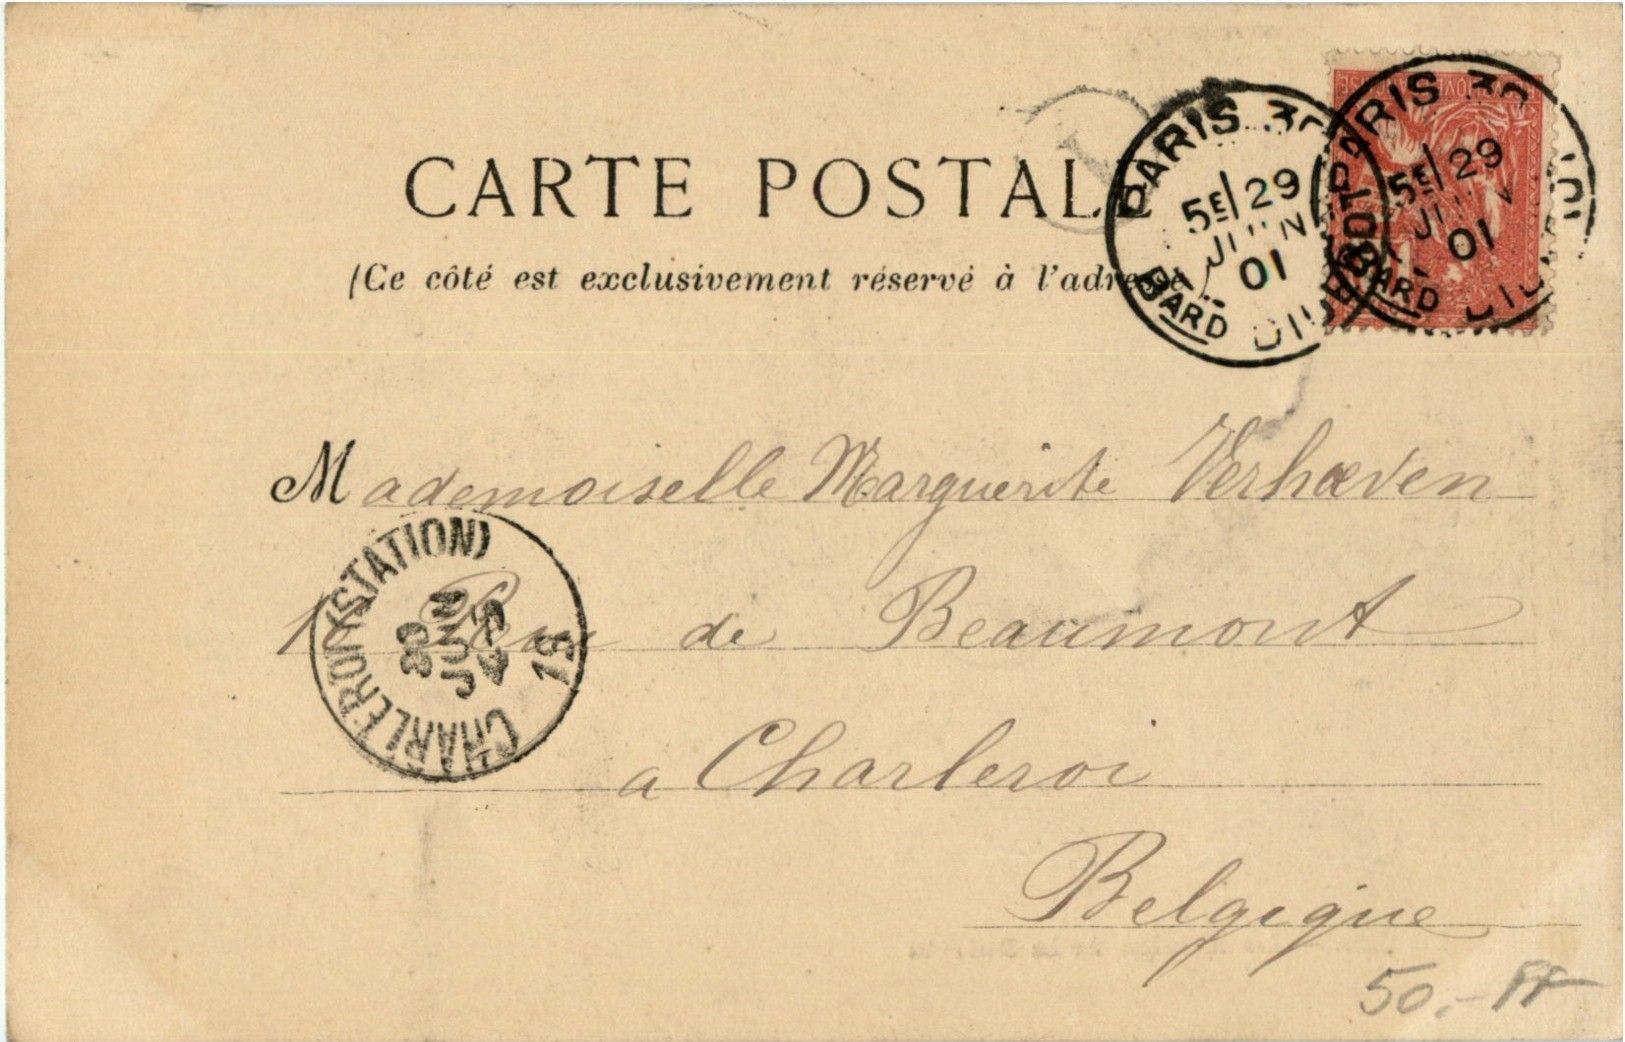 CARTE POSTALE
(Ce côté est exclusivement réservé à l'adresse)
PARIS
5E 29
JUIN
01
BARD
PARIS
5E 29
01
BARD
Mademoiselle Marguerite Verhœven
Rue de Beaumont
a Charleroi
Belgique
CHARLEROI (STATION)
JUIN
19
50.-